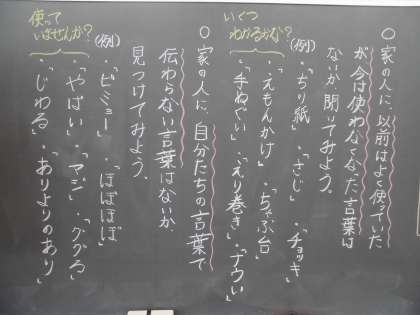 ○ 家の人に、以前はよく使っていた
が今は使わなくなった言葉は
ないか聞いてみよう。
いくつ
わかるかな?
(例)
・「ちり紙」・「さじ」・「チョッキ」
・「えもんかけ」・「ちゃぶ台」
・「手ぬぐい」・「えり巻き」・「ナウい」
○ 家の人に、自分たちの言葉で
伝わらない言葉はないか、
見つけてみよう。
使って
いませんか?
(例)
・「ビミョー」・「ほぼほぼ」
・「やばい」・「マジ」・「ググる」
・「じわる」・「ありよりのあり」